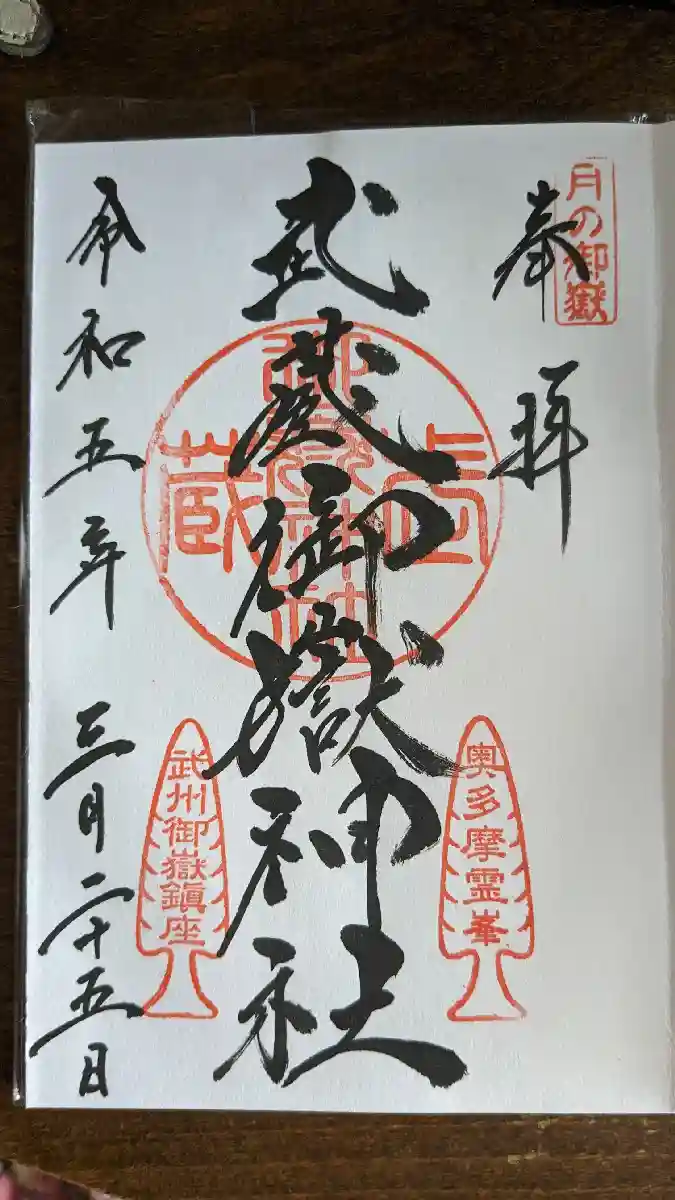 月の御嶽
奉拝
武蔵御嶽神社
武蔵御嶽神社
奥多摩霊峯
武州御嶽鎮座
令和五年三月二十五日